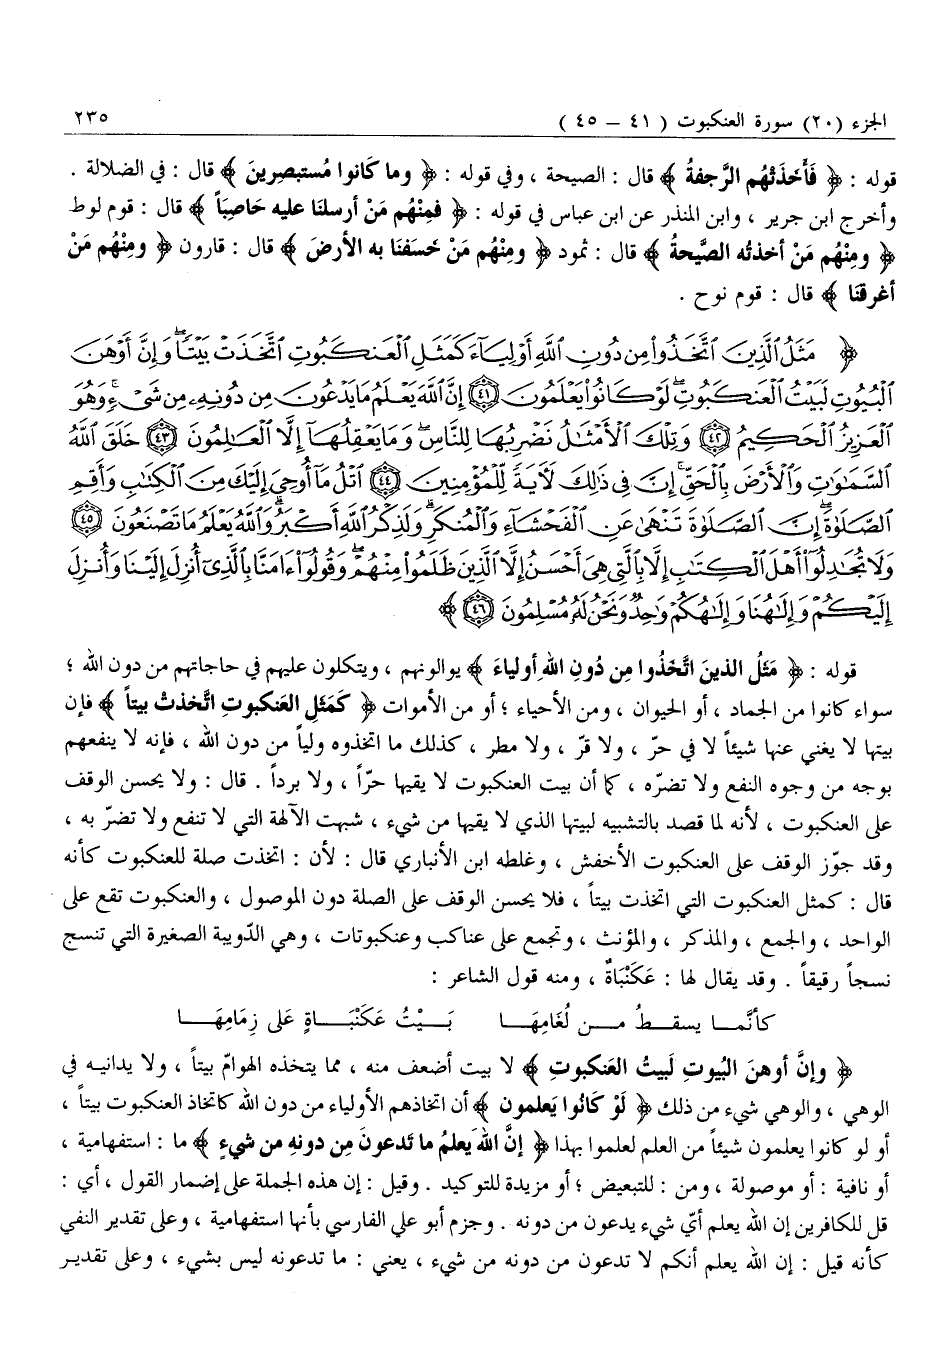 الجزء (٢٠) سورة العنكبوت ( ٤١ – ٤٥ ) ٢٣٥
قوله : ﴿ فَأَخَذَتْهُم الرَّجفةُ ﴾ قال : الصيحة ، وفي قوله : ﴿ وما كَانوا مُستبصِرينَ ﴾ قال : في الضلالة .
وأخرج ابن جرير ، وابن المنذر عن ابن عباس في قوله : ﴿ فمِنْهُم مَنْ أرسلنَا عليه حَاصِبَاً ﴾ قال : قوم لوط
﴿ ومِنْهُم مَنْ أخذتْه الصَّيحةُ ﴾ قال : ثمود ﴿ ومِنْهُم مَنْ خَسَفنَا به الأرضَ ﴾ قال : قارون ﴿ ومِنْهُم مَنْ
أغرقنَا ﴾ قال : قوم نوح .
﴿ مَثَلُ ٱلَّذِينَ ٱتَّخَذُوا۟ مِن دُونِ ٱللَّهِ أَوْلِيَآءَ كَمَثَلِ ٱلْعَنكَبُوتِ ٱتَّخَذَتْ بَيْتًاۖ وَإِنَّ أَوْهَنَ
ٱلْبُيُوتِ لَبَيْتُ ٱلْعَنكَبُوتِۖ لَوْ كَانُوا۟ يَعْلَمُونَ ٤١ إِنَّ ٱللَّهَ يَعْلَمُ مَا يَدْعُونَ مِن دُونِهِۦ مِن شَىْءٍۚ وَهُوَ
ٱلْعَزِيزُ ٱلْحَكِيمُ ٤٢ وَتِلْكَ ٱلْأَمْثَٰلُ نَضْرِبُهَا لِلنَّاسِۖ وَمَا يَعْقِلُهَآ إِلَّا ٱلْعَٰلِمُونَ ٤٣ خَلَقَ ٱللَّهُ
ٱلسَّمَٰوَٰتِ وَٱلْأَرْضَ بِٱلْحَقِّۚ إِنَّ فِى ذَٰلِكَ لَءَايَةً لِّلْمُؤْمِنِينَ ٤٤ ٱتْلُ مَآ أُوحِىَ إِلَيْكَ مِنَ ٱلْكِتَٰبِ وَأَقِمِ
ٱلصَّلَوٰةَۖ إِنَّ ٱلصَّلَوٰةَ تَنْهَىٰ عَنِ ٱلْفَحْشَآءِ وَٱلْمُنكَرِۗ وَلَذِكْرُ ٱللَّهِ أَكْبَرُۗ وَٱللَّهُ يَعْلَمُ مَا تَصْنَعُونَ ٤٥
وَلَا تُجَٰدِلُوٓا۟ أَهْلَ ٱلْكِتَٰبِ إِلَّا بِٱلَّتِى هِىَ أَحْسَنُ إِلَّا ٱلَّذِينَ ظَلَمُوا۟ مِنْهُمْۖ وَقُولُوٓا۟ ءَامَنَّا بِٱلَّذِىٓ أُنزِلَ إِلَيْنَا وَأُنزِلَ
إِلَيْكُمْ وَإِلَٰهُنَا وَإِلَٰهُكُمْ وَٰحِدٌ وَنَحْنُ لَهُۥ مُسْلِمُونَ ٤٦ ﴾
قوله : ﴿ مَثَلُ الذينَ اتَّخَذُوا مِن دُونِ اللهِ أولياءَ ﴾ يوالونهم ، ويتكلون عليهم في حاجاتهم من دون الله ؛
سواء كانوا من الجماد ، أو الحيوان ، ومن الأحياء ؛ أو من الأموات ﴿ كَمَثَلِ العَنكبوتِ اتَّخذتْ بيتاً ﴾ فإن
بيتها لا يغني عنها شيئاً لا في حرّ ، ولا قرّ ، ولا مطر ، كذلك ما اتخذوه ولياً من دون الله ، فإنه لا ينفعهم
بوجه من وجوه النفع ولا تضرّه ، كما أن بيت العنكبوت لا يقيها حرّاً ، ولا برداً . قال : ولا يحسن الوقف
على العنكبوت ، لأنه لما قصد بالتشبيه لبيتها الذي لا يقيها من شيء ، شبهت الآلهة التي لا تنفع ولا تضرّ به ،
وقد جوّز الوقف على العنكبوت الأخفش ، وغلطه ابن الأنباري قال : لأن : اتخذت صلة للعنكبوت كأنه
قال : كمثل العنكبوت التي اتخذت بيتاً ، فلا يحسن الوقف على الصلة دون الموصول ، والعنكبوت تقع على
الواحد ، والجمع ، والمذكر ، والمؤنث ، وتجمع على عناكب وعنكبوتات ، وهي الدّويبة الصغيرة التي تنسج
نسجاً رقيقاً . وقد يقال لها : عَكَنْبَاةٌ ، ومنه قول الشاعر :
كأنَّمـا يسقـطُ مـن لُغَامِهَـا بَـيْتُ عَكَنْبَـاةٍ عَلى زِمَامِهَـا
﴿ وإنَّ أوهنَ البُيوتِ لَبيتُ العَنكبوتِ ﴾ لا بيت أضعف منه ، مما يتخذه الهوامّ بيتاً ، ولا يدانيـه في
الوهي ، والوهي شيء من ذلك ﴿ لَوْ كَانُوا يَعلمون ﴾ أن اتخاذهم الأولياء من دون الله كاتخاذ العنكبوت بيتاً ،
أو لو كانوا يعلمون شيئاً من العلم لعلموا بهذا ﴿ إنَّ اللهَ يَعلمُ ما تَدعونَ مِن دونهِ مِن شيءٍ ﴾ ما : استفهامية ،
أو نافية : أو موصولة ، ومن : للتبعيض ؛ أو مزيدة للتوكيد . وقيل : إن هذه الجملة على إضمار القول ، أي :
قل للكافرين إن الله يعلم أيّ شيء يدعون من دونه . وجزم أبو علي الفارسي بأنها استفهامية ، وعلى تقدير النفي
كأنه قيل : إن الله يعلم أنكم لا تدعون من دونه من شيء ، يعني : ما تدعونه ليس بشيء ، وعلى تقديـر